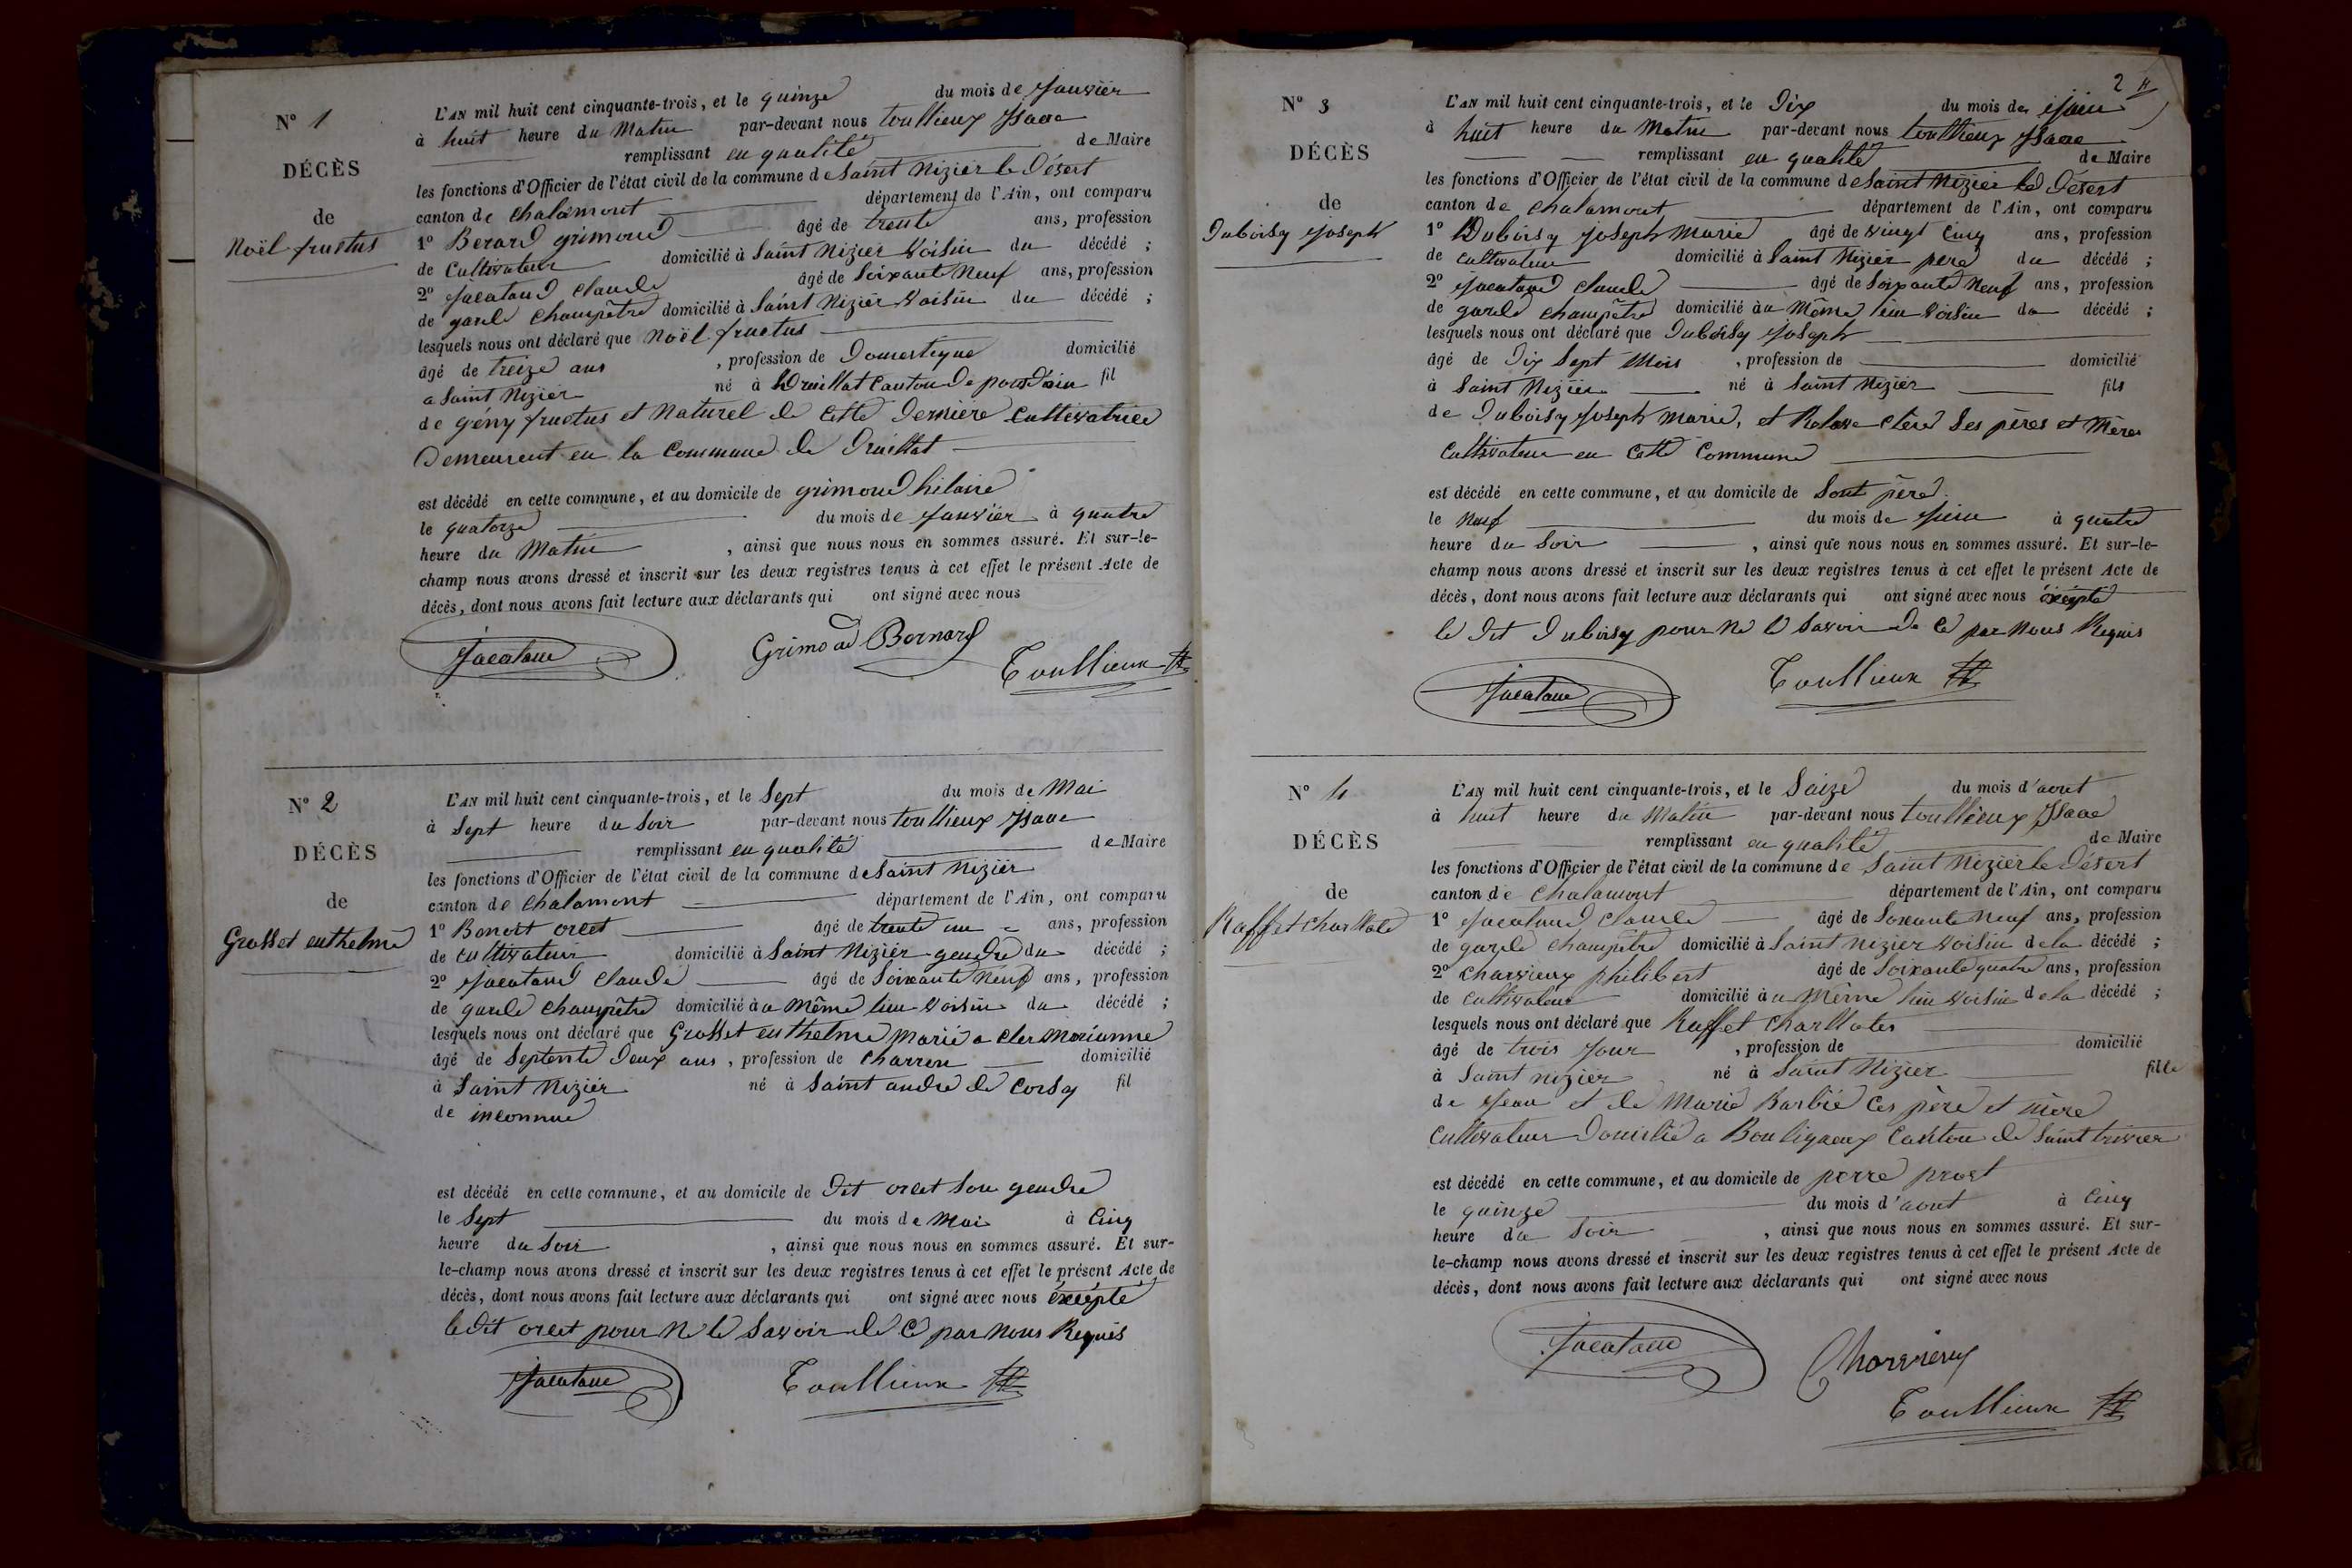 N° 1
DÉCÈS
de
Noël fructus
L'AN mil huit cent cinquante-trois, et le quinze du mois de Janvier
à huit heure du Matin par-devant nous toullieux Isaac
remplissant en qualité de Maire
les fonctions d'Officier de l'état civil de la commune de Saint Nizier le Désert
canton de Chalamont département de l'Ain, ont comparu
1° Berard grimoud âgé de trente ans, profession
de Cultivateur domicilié à Saint Nizier Voisin du décédé ;
2° Jacatand claude âgé de Soixante Neuf ans, profession
de garde champêtre domicilié à Saint Nizier Voisin du décédé ;
lesquels nous ont déclaré que Noël fructus
âgé de treize ans , profession de Domestique domicilié
a Saint Nizier né à Druillat Canton de pont d'ain fil
de gény fructus et Naturel de Cette Dernière Cultivatrice
Demeurent en la Commune de Druillat
est décédé en cette commune, et au domicile de grimoud hilaire
le quatorze du mois de Janvier à quatre
heure du Matin , ainsi que nous nous en sommes assuré. Et sur-le-
champ nous avons dressé et inscrit sur les deux registres tenus à cet effet le présent Acte de
décès, dont nous avons fait lecture aux déclarants qui ont signé avec nous
Jacatand Grimoud Bernard Toullieux
N° 2
DÉCÈS
de
Grosset enthelme
L'AN mil huit cent cinquante-trois, et le Sept du mois de Mai
à Sept heure du Soir par-devant nous toullieux Isaac
remplissant en qualité de Maire
les fonctions d'Officier de l'état civil de la commune de Saint Nizier
canton de Chalamont département de l'Ain, ont comparu
1° Benoit orcet âgé de trente un ans, profession
de Cultivateur domicilié à Saint Nizier gendre du décédé ;
2° Jacatand Claude âgé de Soixante Neuf ans, profession
de garde champêtre domicilié à u Même lieu Voisin du décédé ;
lesquels nous ont déclaré que Grosset enthelme Marié a Cler Marianne
âgé de Septente Deux ans , profession de Charron domicilié
à Saint Nizier né à Saint andré de Corsy fil
de inconnue
est décédé en cette commune, et au domicile de Dit orcet Son gendre
le Sept du mois de Mai à Cinq
heure du Soir , ainsi que nous nous en sommes assuré. Et sur-
le-champ nous avons dressé et inscrit sur les deux registres tenus à cet effet le présent Acte de
décès, dont nous avons fait lecture aux déclarants qui ont signé avec nous éxcépté
le Dit orcet pour Ne le Savoir de Ce par Nous Requis
Jacatand Toullieux
2
N° 3
DÉCÈS
de
Duboisy Joseph
L'AN mil huit cent cinquante-trois, et le Dix du mois de Juin
à huit heure du Matin par-devant nous toullieux Isaac
remplissant en qualité de Maire
les fonctions d'Officier de l'état civil de la commune de Saint Nizier le Désert
canton de Chalamont département de l'Ain, ont comparu
1° Duboisy Joseph Marie âgé de vingt Cinq ans, profession
de Cultivateur domicilié à Saint Nizier pere du décédé ;
2° Jacatand Claude âgé de Soixante Neuf ans, profession
de garde champêtre domicilié à u Même lieu Voisin du décédé ;
lesquels nous ont déclaré que Duboisy Joseph
âgé de Dix Sept Mois , profession de domicilié
à Saint Nizier né à Saint Nizier fils
de Duboisy Joseph Marie, et Clère Ses pères et Mères
Cultivateur en Cette Commune
est décédé en cette commune, et au domicile de Sont père
le Neuf du mois de Juin à quatre
heure du Soir , ainsi que nous nous en sommes assuré. Et sur-le-
champ nous avons dressé et inscrit sur les deux registres tenus à cet effet le présent Acte de
décès, dont nous avons fait lecture aux déclarants qui ont signé avec nous éxcépté
le Dit Duboisy pour Ne le Savoir de Ce par Nous Requis
Jacatand Toullieux
N° 4
DÉCÈS
de
Raffet Charllote
L'AN mil huit cent cinquante-trois, et le Saize du mois d'aout
à huit heure du Matin par-devant nous toullieux Isaac
remplissant en qualité de Maire
les fonctions d'Officier de l'état civil de la commune de Saint Nizier le Désert
canton de Chalamont département de l'Ain, ont comparu
1° Jacatand Claude âgé de Soixante Neuf ans, profession
de garde champêtre domicilié à Saint Nizier Voisin de la décédé ;
2° Charvieux philibert âgé de Soixante quatre ans, profession
de Cultivateur domicilié à u Même lieu Voisin de la décédé ;
lesquels nous ont déclaré que Raffet Charllotes
âgé de trois Jour , profession de domicilié
à Saint Nizier né à Saint Nizier fille
de Jean et de Marie Barbié Ces père et mère
Cultivateur Domicilié a Bouligneux Canton de Saint trivier
est décédé en cette commune, et au domicile de perre prost
le quinze du mois d'aout à Cinq
heure du Soir , ainsi que nous nous en sommes assuré. Et sur-
le-champ nous avons dressé et inscrit sur les deux registres tenus à cet effet le présent Acte de
décès, dont nous avons fait lecture aux déclarants qui ont signé avec nous
Jacatand Charvieux
Toullieux